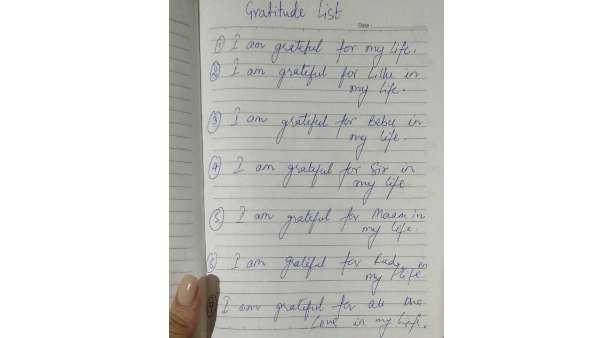 Gratitude List
Date
① I am grateful for my life.
② I am grateful for Lillu in
my life.
③ I am grateful for Bebu in
my life.
④ I am grateful for Sir in
my life
⑤ I am grateful for Maam in
my life.
⑥ I am grateful for in
my life
⑦ I am grateful for all the
Love in my life.